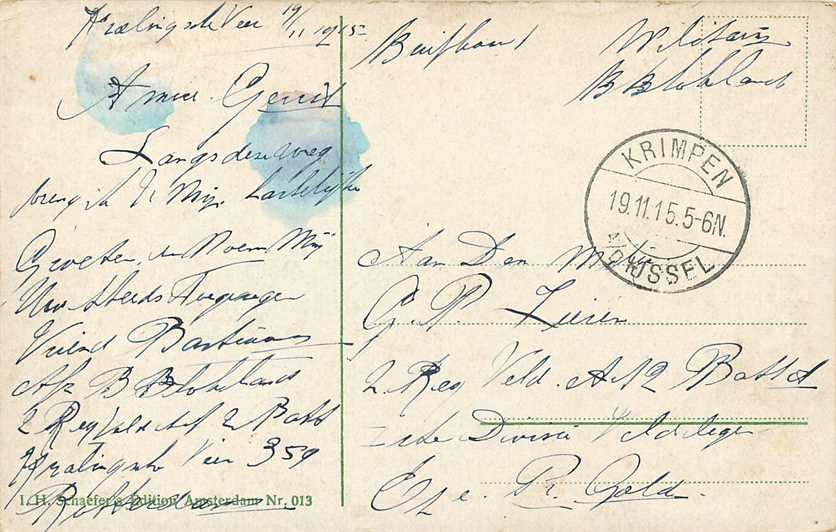 Kralingsche Veer 19/11 1915
Amice Gerrit
Langs deze weg
breng ik U Mijn hartelijke
Groeten en Noem Mij
Uw Steeds Toegenegen
Vriend Bastiaan
Afz B Blokland
2 Reg Veld Art 2 Batt
Kralingsche Veer 359
Rotterdam
I. H. Schaefer's Edition Amsterdam Nr. 013
Militair
B Blokland
KRIMPEN
19.11.15.5-6N.
A/D IJSSEL
Aan Den
G. P.
2 Reg Veld. Art 2 Batt
Divisie Veldleger
Ede. Pr. Geld.